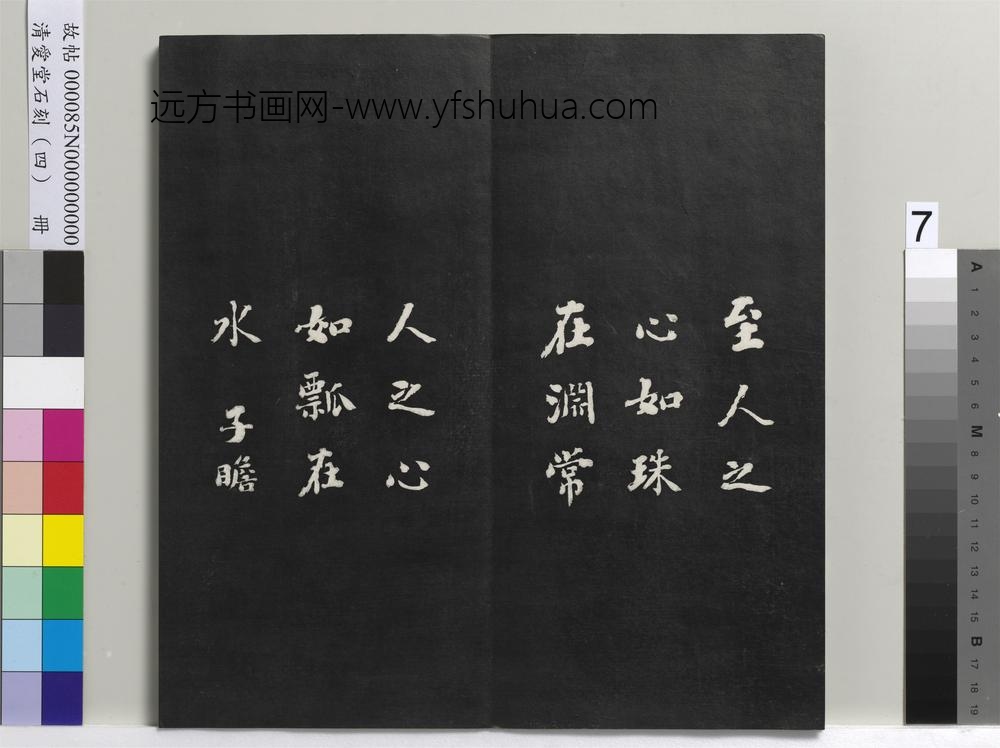 故帖 000085N000000000
清愛堂石刻（四） 冊
远方书画网-www.yfshuhua.com
至人之
心如珠
在淵常
人之心
如瓢在
水 子瞻
7
A
1
2
3
4
5
6
M
8
9
10
11
12
13
14
15
B
17
18
19